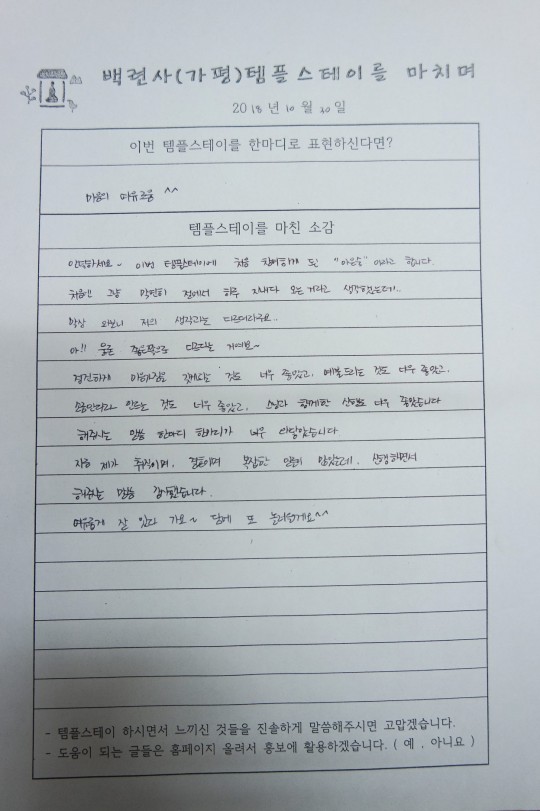 백련사(가평)템플스테이를 마치며
2018년 10월 30일
이번 템플스테이를 한마디로 표현하신다면?
마음의 여유로움 ^^
템플스테이를 마친 소감
안녕하세요~ 이번 템플스테이에 처음 참여하게 된 "이은솔" 이라고 합니다.
처음엔 그냥 막연히 절에서 하루 지내다 오는거라고 생각했는데..
막상 와보니 저의 생각과는 다르더라구요..
아!! 물론 좋은쪽으로 다르다는 거예요~
정전하게 마음가짐을 갖게되는 것도 너무 좋았고, 예불드리는 것도 너무 좋았고,
소원만다라 만드는 것도 너무 좋았고, 스님과 함께한 산행도 너무 좋았습니다
해주시는 말씀 한마디 한마디가 너무 와닿았습니다
지금 제가 취직이며, 결혼이며 복잡한 일들이 많았는데, 산행하면서
해주신 말씀 감사했습니다.
여유롭게 잘 있다 가요~ 담에 또 놀러올게요^^
- 템플스테이 하시면서 느끼신 것들을 진솔하게 말씀해주시면 고맙겠습니다.
- 도움이 되는 글들은 홈페이지 올려서 홍보에 활용하겠습니다. ( 예 , 아니요 )